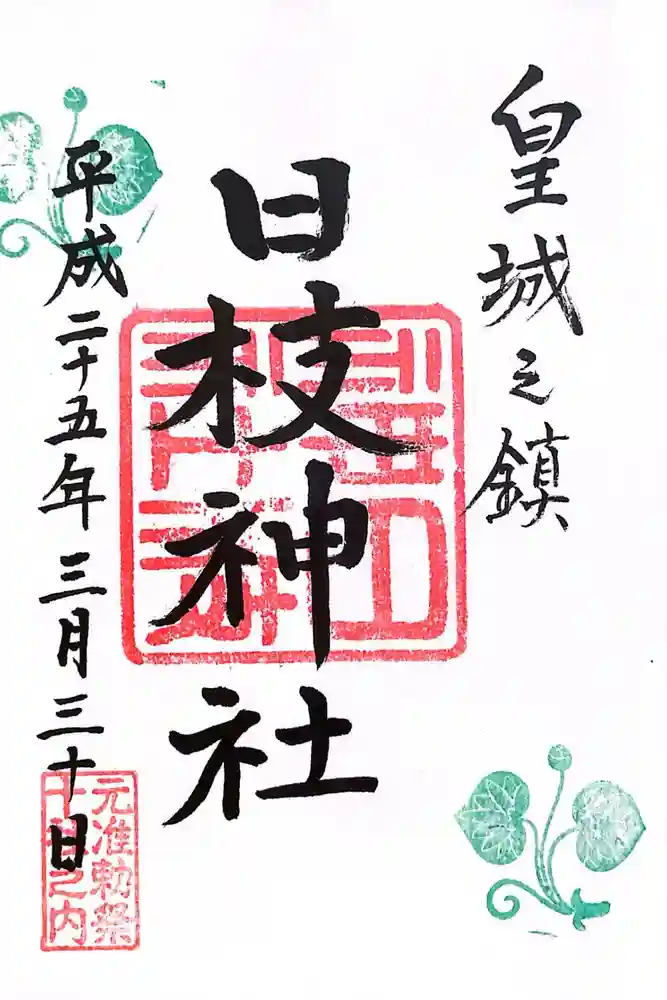 皇城之鎮
日枝神社
平成二十五年三月三十日
元准勅祭
十社之内